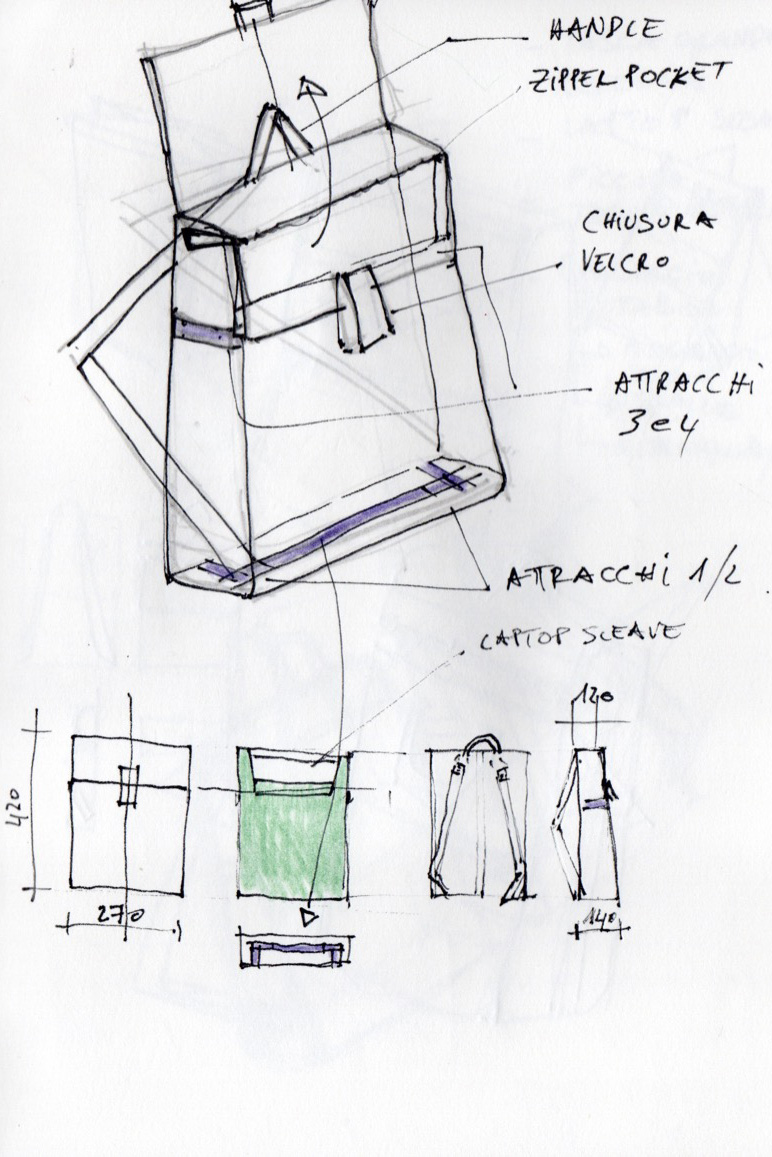 HANDLE
ZIPPEL POCKET
CHIUSURA
VELCRO
ATTRACCHI
3 e 4
ATTRACCHI 1/2
LAPTOP SLEAVE
120
420
270
140